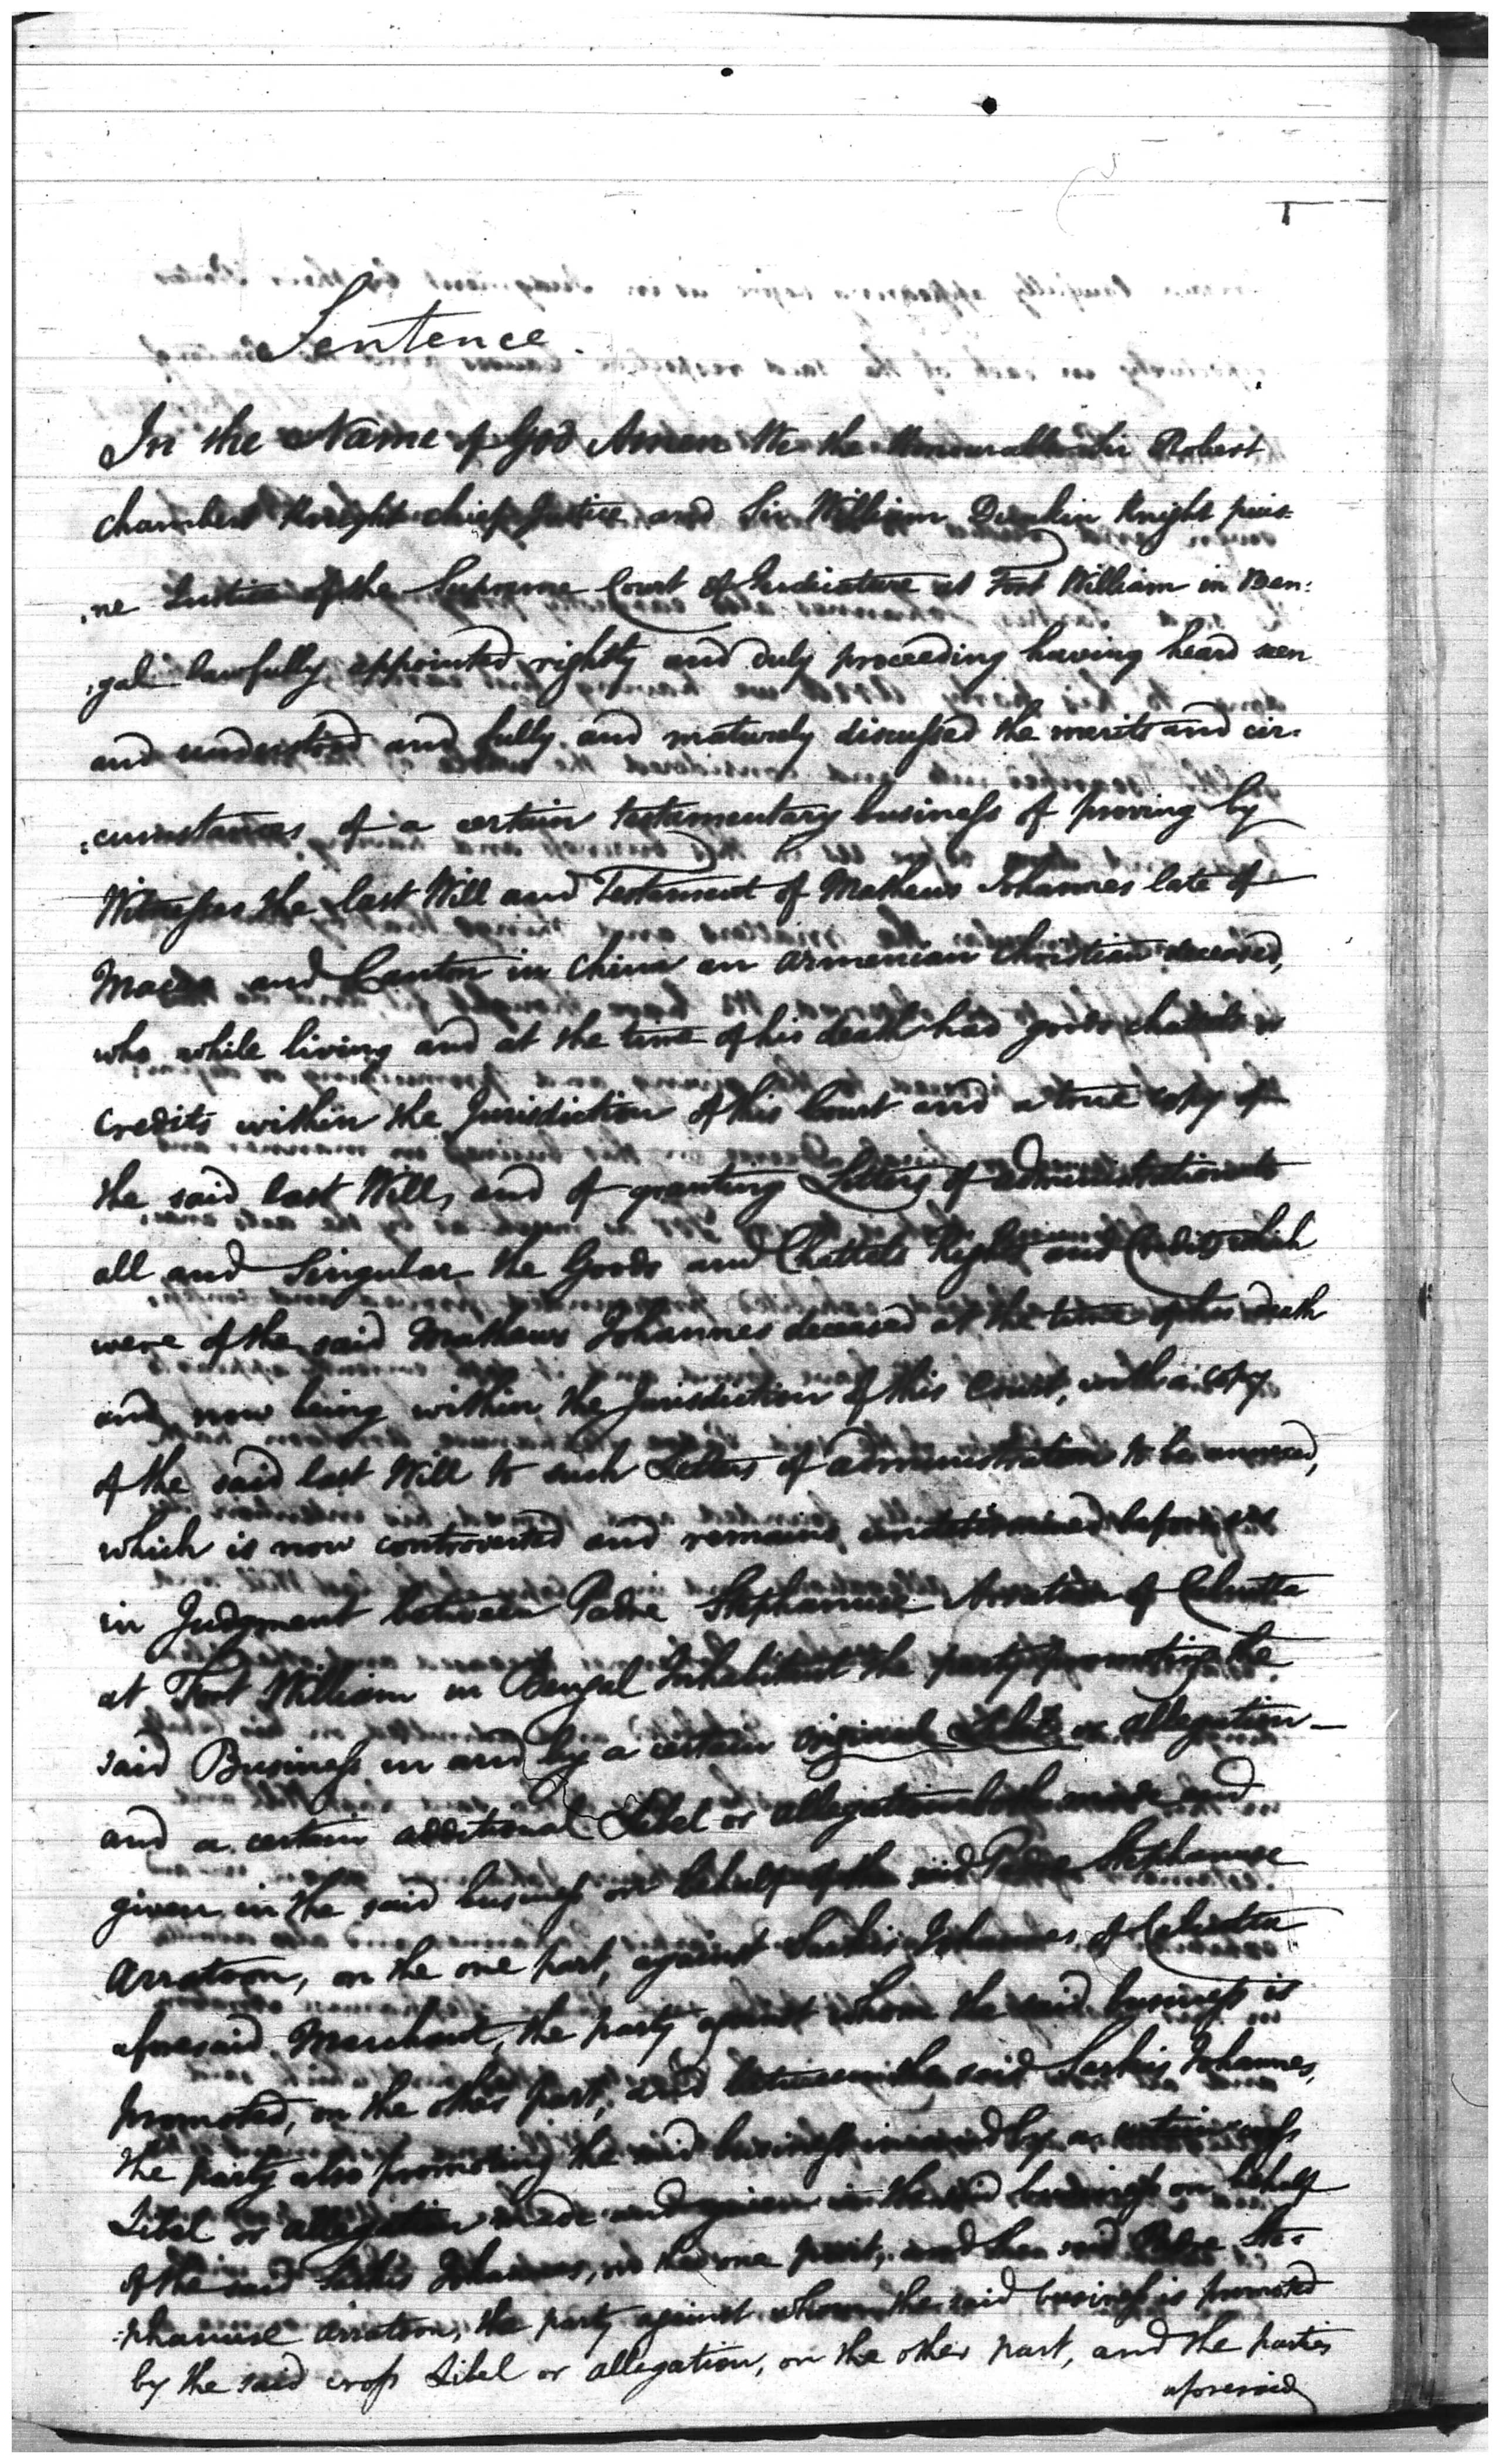 Sentence.
In the Name of God Amen We the Honourable Sir Robert
Chambers Knight chief Justice and Sir William Dunkin Knight puis=
:ne Justice of the Supreme Court of Judicature at Fort William in Ben:
:gal lawfully appointed rightly and duly proceeding having heard seen
and understood and fully and maturely discussed the merits and cir=
:cumstances of a certain testamentary business of proving by
Witnesses the last Will and Testament of Mathews Johannes late of
Macao and Canton in China an Armenian Christian deceased,
who while living and at the time of his death had goods chattels &
credits within the Jurisdiction of this Court and a true copy of
the said last Will, and of granting Letters of administration to
all and Singular the Goods and Chattels Rights and Credits which
were of the said Mathews Johannes deceased at the time of his death
and now being within the Jurisdiction of this Court, with a copy
of the said last Will to such Letters of administration to be annexed,
which is now controverted and remains undetermined before us
in Judgment between Padre Stephanuse Arratoon of Calcutta
at Fort William in Bengal Inhabitant the party promoting the
said Business in and by a certain original Libel or allegation
and a certain additional Libel or allegation both made and
given in the said business on behalf of the said Padre Stephanuse
Arratoon, on the one part, against Sarkis Johannes of Calcutta
aforesaid Merchant, the party against whom the said business is
promoted, on the other part, and between the said Sarkis Johannes,
the party also promoting the said business in and by a certain cross
Libel or allegation made and given in the said business on behalf
of the said Sarkis Johannes, on the one part, and the said Padre Ste=
:phanuse Arratoon, the party against whom the said business is promoted
by the said cross Libel or allegation, on the other part, and the parties
aforesaid